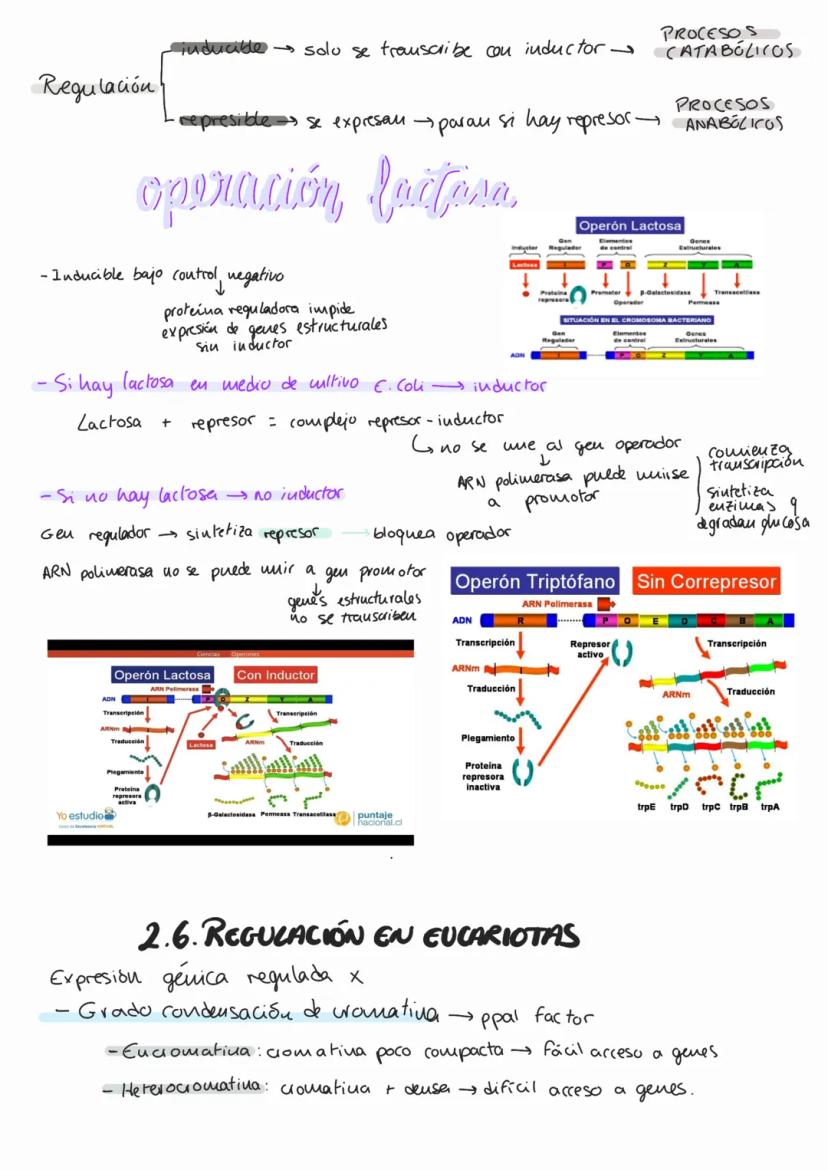 inducible → solo se transcribe con inductor → PROCESOS CATABÓLICOS
Regulación
represible → se expresan → paran si hay represor → PROCESOS ANABÓLICOS
operación lactasa
- Inducible bajo control negativo
proteína reguladora impide
expresión de genes estructurales
sin inductor
Operón Lactosa
Inductor
Gen Regulador
Elementos de control
Genes Estructurales
Lactosa I P O Z Y A
Proteína represora
Promotor
Operador
β-Galactosidasa
Permeasa
Transacetilasa
SITUACIÓN EN EL CROMOSOMA BACTERIANO
Gen Regulador
Elementos de control
Genes Estructurales
ADN I P O Z Y A
- Si hay lactosa en medio de cultivo E. Coli → inductor
Lactosa + represor = complejo represor - inductor
↳ no se une al gen operador
↓
ARN polimerasa puede unirse
a promotor
comienza
transcripción
sintetiza
enzimas q
degradan glucosa
- Si no hay lactosa → no inductor
Gen regulador → sintetiza represor → bloquea operador
ARN polimerasa no se puede unir a gen promotor
↓
genes estructurales
no se transcriben
Ciencias Operones
Operón Lactosa Con Inductor
ARN Polimerasa
ADN I P O Z Y A
Transcripción
Transcripción
ARNm
Traducción
Lactosa
ARNm
Traducción
Plegamiento
Proteína
represora
activa
β-Galactosidasa Permeasa Transacetilasa
Yo estudio
puntaje
nacional.cl
Operón Triptófano Sin Correpresor
ARN Polimerasa
ADN R P O E D C B A
Transcripción
Represor
activo
Transcripción
ARNm
Traducción
ARNm
Traducción
Plegamiento
Proteína
represora
inactiva
trpE trpD trpC trpB trpA
2.6. REGULACIÓN EN EUCARIOTAS
Expresión génica regulada x
- Grado condensación de cromatina → ppal factor
- Eucromatina: cromatina poco compacta → fácil acceso a genes
- Heterocromatina: cromatina + densa → difícil acceso a genes.